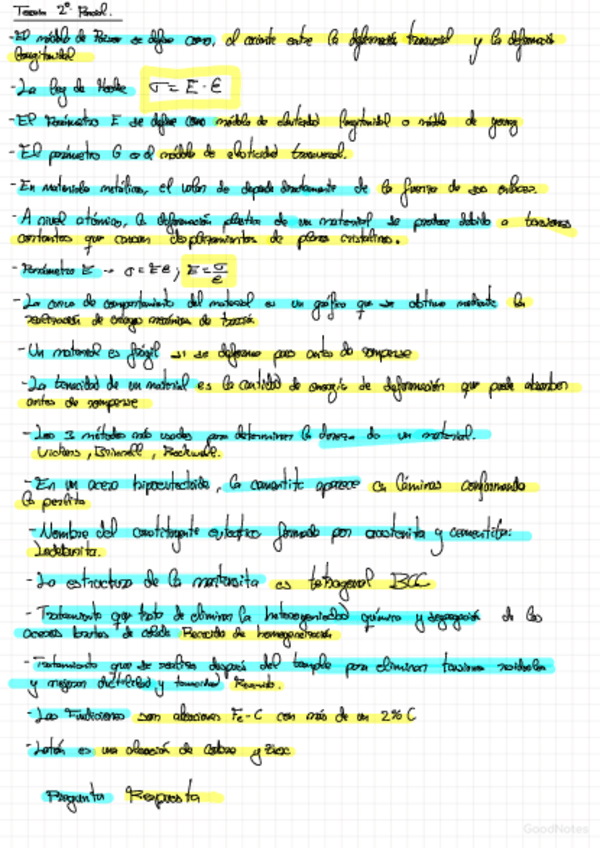 Teoría 2º Parcial.
-El módulo de Poisson se define como, el cociente entre la deformación transversal y la deformación
longitudinal
-La ley de Hooke σ = E · ε
-El Parámetro E se define como módulo de elasticidad longitudinal o módulo de young
-El parámetro G es el módulo de elasticidad transversal.
-En materiales metálicos, el valor de depende directamente de la fuerza de sus enlaces.
-A nivel atómico, la deformación plástica de un material se produce debido a tensiones
cortantes que causan desplazamientos de planos cristalinos.
-Parámetro E → σ = Eε ; E = σ/ε
-La curva de comportamiento del material es un gráfico que se obtiene mediante la
realización de ensayo mecánico de tracción
-Un material es frágil si se deforma poco antes de romperse
-La tenacidad de un material es la cantidad de energía de deformación que puede absorber
antes de romperse
-Los 3 métodos más usados para determinar la dureza de un material.
Vickers, Brinnell, Rockwell.
-En un acero hipoeutectoide, la cementita aparece en láminas conformando
la perlita
-Nombre del constituyente eutéctico formado por austenita y cementita:
Ledeburita.
-La estructura de la martensita es tetragonal BCC
-Tratamiento que trata de eliminar la heterogeneidad química y segregación de los
aceros brutos de colada Recocido de homogeneización
-Tratamiento que se realiza después del temple para eliminar tensiones residuales
y mejorar ductilidad y tenacidad Revenido.
-Las Fundiciones son aleaciones Fe-C con más de un 2% C
-Latón es una aleación de Cobre y Zinc
Pregunta Respuesta
GoodNotes